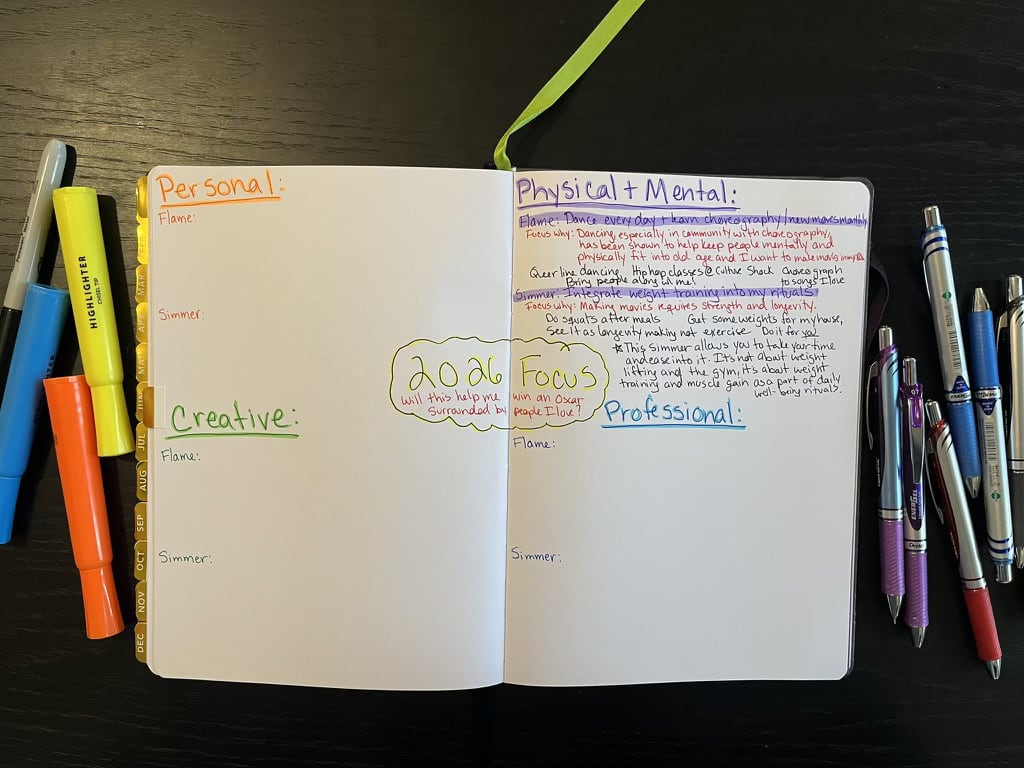 Personal:
Flame:
Simmer:
Creative:
Flame:
Simmer:
2026 Focus
will this help me win an Oscar
surrounded by people I love?
Physical + Mental:
Flame: Dance every day + learn choreography/new moves monthly
Focus why: Dancing, especially in community with choreography,
has been shown to help keep people mentally and
physically fit into old age and I want to make movies
Queer line dancing Hip hop classes @ Culture Shock Choreograph
Bring people along w/ me! to songs I love
Simmer: Integrate weight training into my rituals
Focus why: Making movies requires strength and longevity!
Do squats after meals Get some weights for my house,
See it as longevity making not exercise Do it for you
☆This Simmer allows you to take your time
and ease into it. It's not about weight
lifting and the gym, it's about weight
training and muscle gain as a part of daily
well-being rituals.
Professional:
Flame:
Simmer:
MAR
APR
MAY
JUN
JUL
AUG
SEP
OCT
NOV
DEC
HIGHLIGHTER
CHISEL TIP
ENERGEL
Pentel
07
ENERGEL